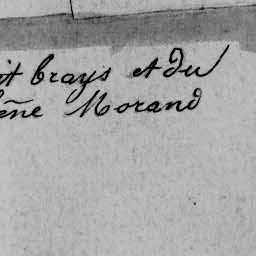 it brays et du
ène Morand